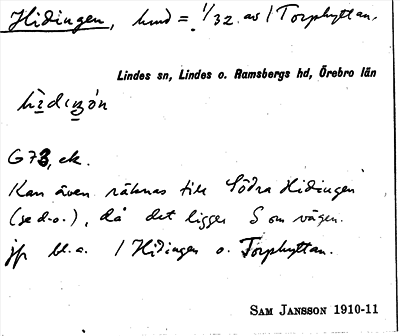 Hidingen, hmd = 1/32 av 1 Torphyttan.
Lindes sn, Lindes o. Ramsbergs hd, Örebro län
G73, ek.
Kan även räknas till Södra Hidingen
(se d.o.), då det ligger S om vägen.
jfr bl.a. 1 Hidingen o. Torphyttan.
SAM JANSSON 1910-11